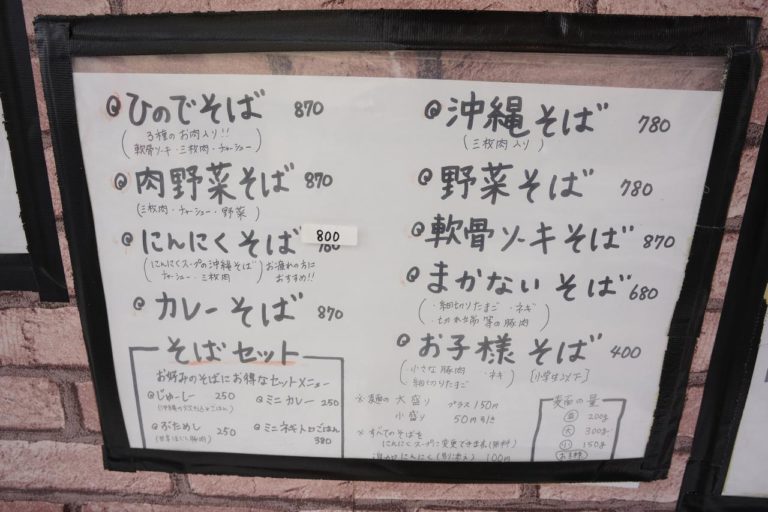 ひのでそば 870
(3種のお肉入り!!
軟骨ソーキ・三枚肉・チャーシュー)
肉野菜そば 870
(三枚肉・チャーシュー・野菜)
にんにくそば 800
(にんにくスープの沖縄そば
チャーシュー・三枚肉)
お疲れの方に
おすすめ!!
カレーそば 870
そばセット
お好みのそばにお得なセットメニュー
じゅーしー 250
ミニカレー 250
ぶためし 250
ミニネギトロごはん
380
沖縄そば 780
(三枚肉入り)
野菜そば 780
軟骨ソーキそば 870
まかないそば 680
(・細切りたまご ・ネギ
・切れ端等の豚肉)
お子様そば 400
(・小さな豚肉 ・ネキ
細切りたまご)
[小学生以下]
※麺の大盛り プラス150円
小盛り 50円引き
※すべてのそばを
にんにくスープに変更できます(無料)
にんにく 100円
麺の量
並 200g
大 300g
小 150g
お子様